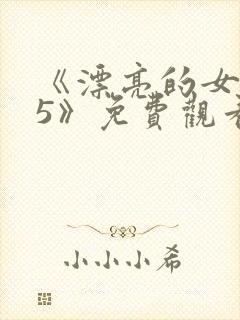 《漂亮的女
5》免費觀看
小小小希